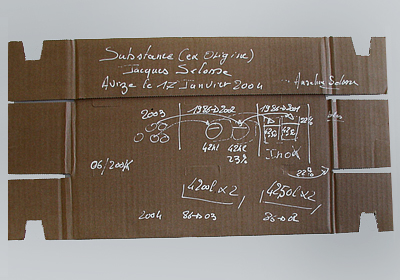 Substance (ex Origine)
Jacques Selosse
Avize le 17 Janvier 2004
Anselme Selosse
2003
1986-D2002
1986-D2001
22%
42hl 42hl
23%
Inox
22%
06/200X
4200l x2
4250l x2
2004 86-D03 86-D02